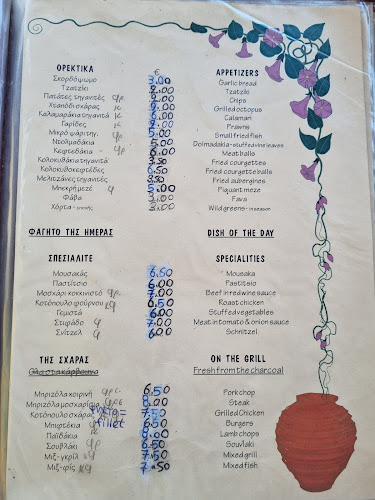 ΟΡΕΚΤΙΚΑ € APPETIZERS
Σκορδόψωμο 3.00 Garlic bread
Τζατζίκι 3.00 Tzatziki
Πατάτες τηγανιτές Chips
Χταπόδι σχάρας Grilled octopus
Καλαμαράκια τηγανιτά Calamari
Γαρίδες Prawns
Μικρό ψάρι τηγ. 5.00 Small fried fish
Ντολμαδάκια 5.00 Dolmadakia - stuffed vine leaves
Κεφτεδάκια - 6.00 Meat balls
Κολοκυθάκια τηγανιτά 3.50 Fried courgettes
Κολοκυθοκεφτέδες 6.50 Fried courgette balls
Μελιτζάνες τηγανιτές 3.50 Fried aubergines
Μπεκρήμεζέ φ 5.00 Piquant meze
Φάβα 3.00 Fava
Χόρτα - εποχής 3.00 Wild greens - in season
ΦΑΓΗΤΟ ΤΗΣ ΗΜΕΡΑΣ DISH OF THE DAY
ΣΠΕΣΙΑΛΙΤΕ SPECIALITIES
Μουσακάς 6.50 Mousaka
Παστίτσιο 6.00 Pastitsio
Μοσχάρι κοκκινιστό φρ. 7.00 Beef in red wine sauce
Κοτόπουλο φούρνου 6.50 Roast chicken
Γεμιστά 6.00 Stuffed vegetables
Στιφάδο φ 7.00 Meat in tomato & onion sauce
Σνίτζελ φ 6.00 Schnitzel
ΤΗΣ ΣΧΑΡΑΣ ON THE GRILL
Fresh from the charcoal
Μπριζόλα χοιρινή φρ. 6.50 Pork chop
Μπριζόλα μοσχαρίσια φρ. 8.00 Steak
Κοτόπουλο σχάρας 7.50 Grilled Chicken
fillet
Μπιφτέκια φ 6.50 Burgers
Παϊδάκια 8.00 Lamb chops
Σουβλάκι φρ 6.50 Souvlaki
Μιξ-γκρίλ φ 7.50 Mixed grill
Μιξ-φίς κφ 7.50 Mixed fish